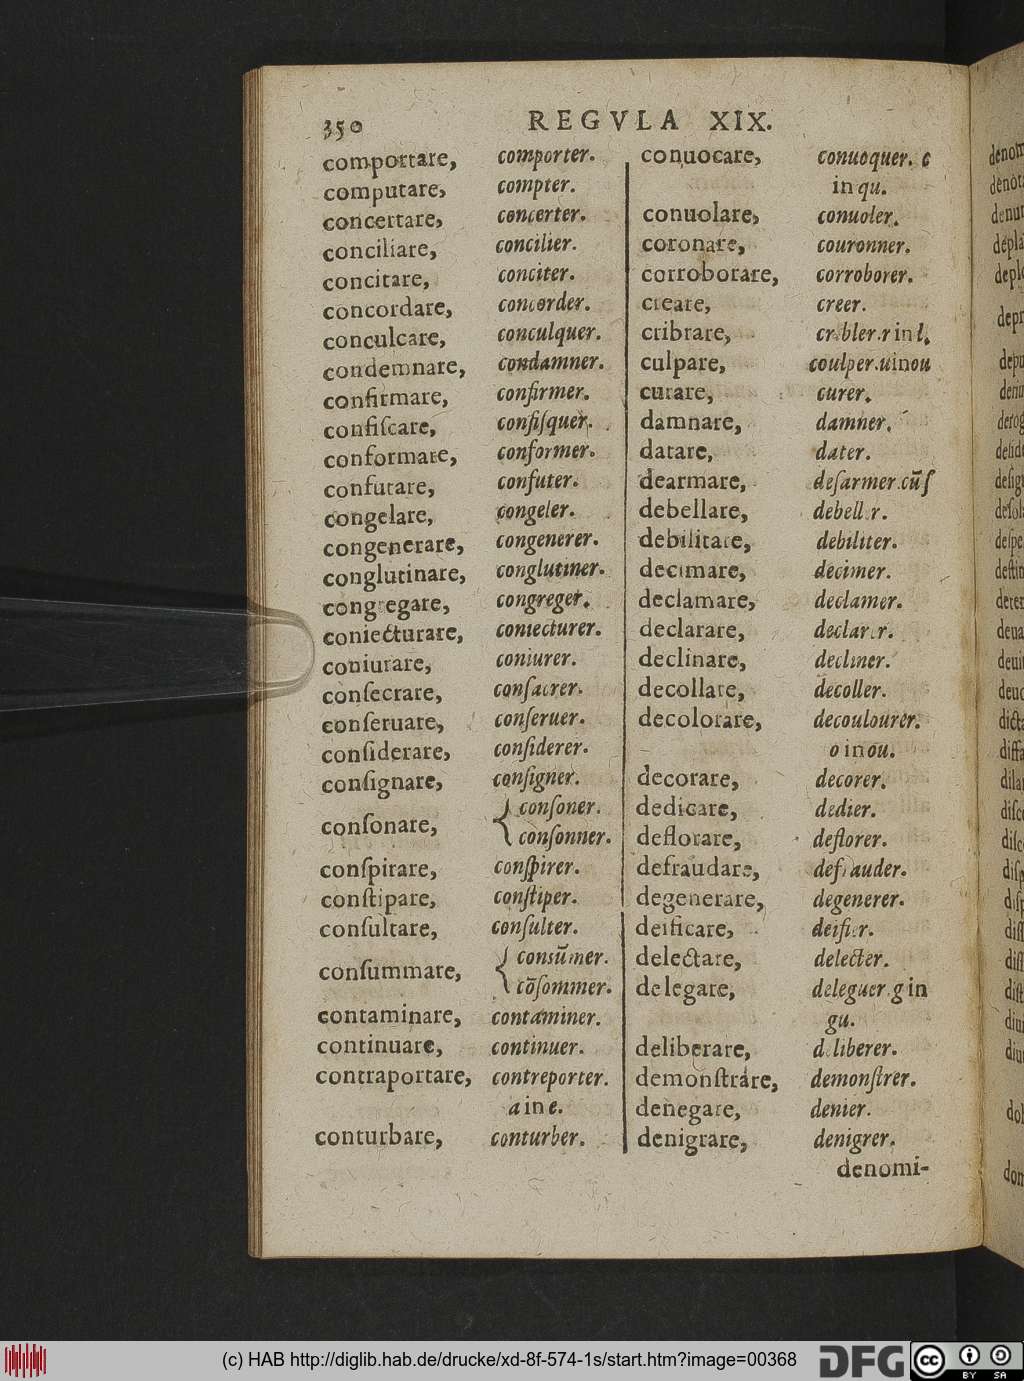 350 REGVLA XIX.
comportare, comporter.
computare, compter.
concertare, concerter.
conciliare, concilier.
concitare, conciter.
concordare, concorder.
conculcare, conculquer.
condemnare, condamner.
confirmare, confirmer.
confiſcare, confiſquer.
conformare, conformer.
confutare, confuter.
congelare, congeler.
congenerare, congenerer.
conglutinare, conglutiner.
congregare, congreger.
coniecturare, coniecturer.
coniurare, coniurer.
conſecrare, conſacrer.
conſeruare, conſeruer.
conſiderare, conſiderer.
conſignare, conſigner.
conſonare, { conſoner.
conſonner.
conſpirare, conſpirer.
conſtipare, conſtiper.
conſultare, conſulter.
conſummare, { conſūmer.
cōſommer.
contaminare, contaminer.
continuare, continuer.
contraportare, contreporter.
a in e.
conturbare, conturber.
conuocare, conuoquer. c
in qu.
conuolare, conuoler.
coronare, couronner.
corroborare, corroborer.
creare, creer.
cribrare, cribler.r in l.
culpare, coulper.u in ou
curare, curer.
damnare, damner.
datare, dater.
dearmare, deſarmer.cũ ſ
debellare, debeller.
debilitare, debiliter.
decimare, decimer.
declamare, declamer.
declarare, declarer.
declinare, decliner.
decollare, decoller.
decolorare, decoulourer.
o in ou.
decorare, decorer.
dedicare, dedier.
deflorare, deflorer.
defraudare, defrauder.
degenerare, degenerer.
deificare, deifier.
delectare, delecter.
delegare, deleguer.g in
gu.
deliberare, deliberer.
demonſtrare, demonſtrer.
denegare, denier.
denigrare, denigrer.
denomi-
(c) HAB http://diglib.hab.de/drucke/xd-8f-574-1s/start.htm?image=00368
DFG
cc BY SA